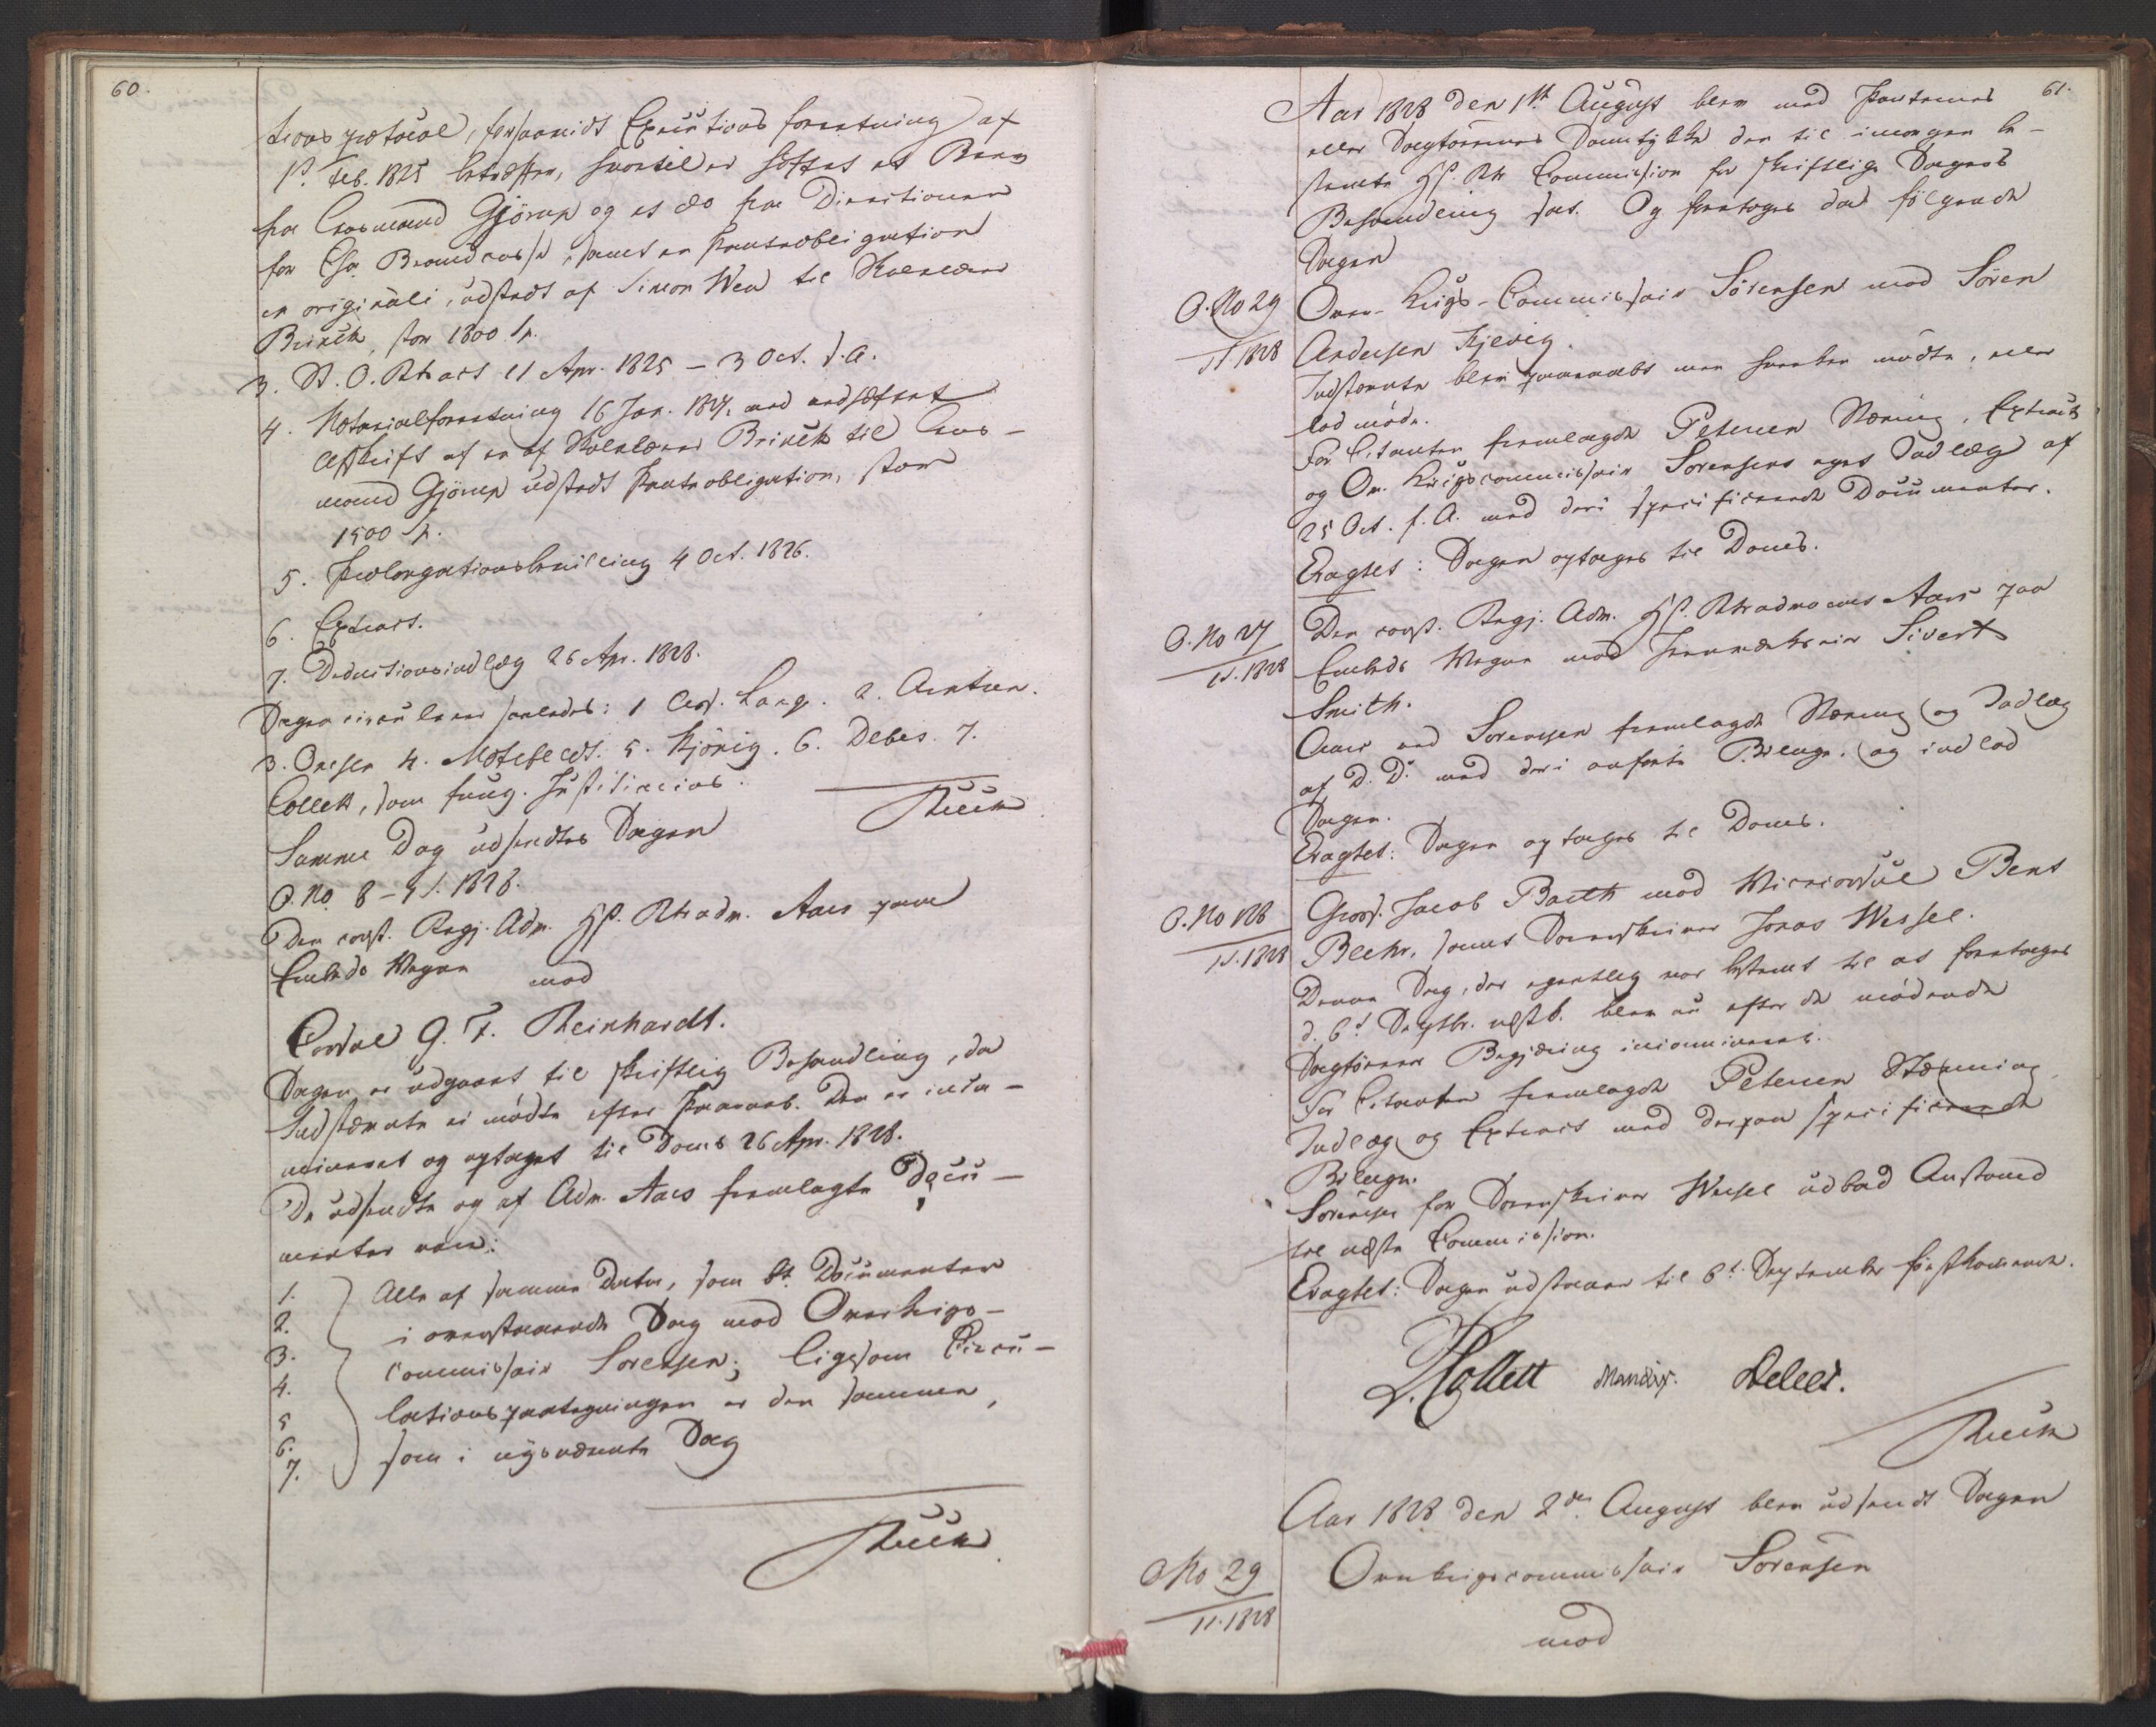 60.
tions protocol, hersammest Executions forretning af
1st. Feb. 1825 betræffer, hvortil er heftet et Brev
fra Gjörup og et do fra Directionen
for Chr. Brandcasse, samt en Pantobligation
in originali, udstedt af Simon Wen til Kalnes
Brinch, stor 1800 Sp.
3. St. O. Rts act 11 Apr. 1825 – 3 Oct. s. A.
4. Notarialforretning 16 Jan. 1827, med vedhæftet
Afskrift af en af Brinch til Cos-
mand Gjörup udstedt Pantobligation, stor
1500 Sp.
5. Prolongationsbevilling 4 Oct. 1826.
6. Extract.
7. Deductionsindlæg 26 Apr. 1828.
Sagen circulerer saaledes: 1 Ass. Lange. 2. Arntzen.
3. Omsen 4. Motzfeldt. 5. Hjörnig. 6. Debes. 7.
Collett, som fung. Justitiarius.
Samme Dag udsendtes Sagen
O. No 8 – 1/1. 1828.
Den const. Regj. Adv. HP. Rtsadv. Aars paa
Embeds Vegne
mod
Consul G. F. Reinhardt.
Sagen er udgaaet til skriftlig Behandling, da
Indstævnte ei mödte efter Paaraab. Den er incam-
mineret og optaget til Doms 26 Apr. 1828.
De udsendte og af Adv. Aars fremlagte Docu-
menter ere:
1.
2.
3.
4.
5
6.
7.
Alle af samme Dato, som bt. Documenter
i ovenstaaende Sag mod Overkrigs-
commissair Sorensen; ligesom Circu-
lationspaategningen er den samme,
som i nysnævnte Sag
61.
Aar 1828 den 1ste August blev med Parternes
eller Sagförernes Samtykke den til imorgen be-
stemte HP. Rts Commission for skriftlige Sagers
Behandling sat. Og foretoges da følgende
Sager
O. No 29
1/1 1828
Over-Krigs-Commissair Sörensen mod Sören
Andersen Kjevig.
Indstævnte blev paaraabt men hverken mødte, eller
lod möde.
For Citanten fremlagde Petersen Stævning, Extract
og Ov. Krigscommissair Sorensens eget Indlæg af
25 Oct. f. A. med deri specificerede Documenter.
Eragtet: Sagen optages til Doms.
O. No 27
1/1. 1828
Den const. Regj. Adv. HP. Rtsadvocat Aars paa
Embeds Vegne mod Sivert
Smith.
Aars ved Sorensen fremlagde Stævning og Indlæg
af D. D. med deri anførte Bilage, og indlod
Sagen.
Eragtet: Sagen optages til Doms.
O. No 128
1/1. 1828
Gross. Jacob Barth mod Viceconsul Bent
Beehr, samt Sorenskriver Jonas Wessel.
Denne Sag, der egentlig var bestemt til at foretages
d. 6t Septbr. næstk. blev nu efter de mödende
Sagförers Begjæring incammineret.
For Citanten fremlagde Petersen Stævning
Indlæg og Extract med derpaa specificerede
Bilager.
Sörensen for Sorenskriver Wessel udbad Anstand
til næste Commission.
Eragtet: Sagen udstaaer til 6t September förstkommende.
Collett Mandix. Debes.
Aar 1828 den 2den August blev udsendt Sagen
O No 29
1/1. 1828
Overkrigscommissair Sorensen
mod